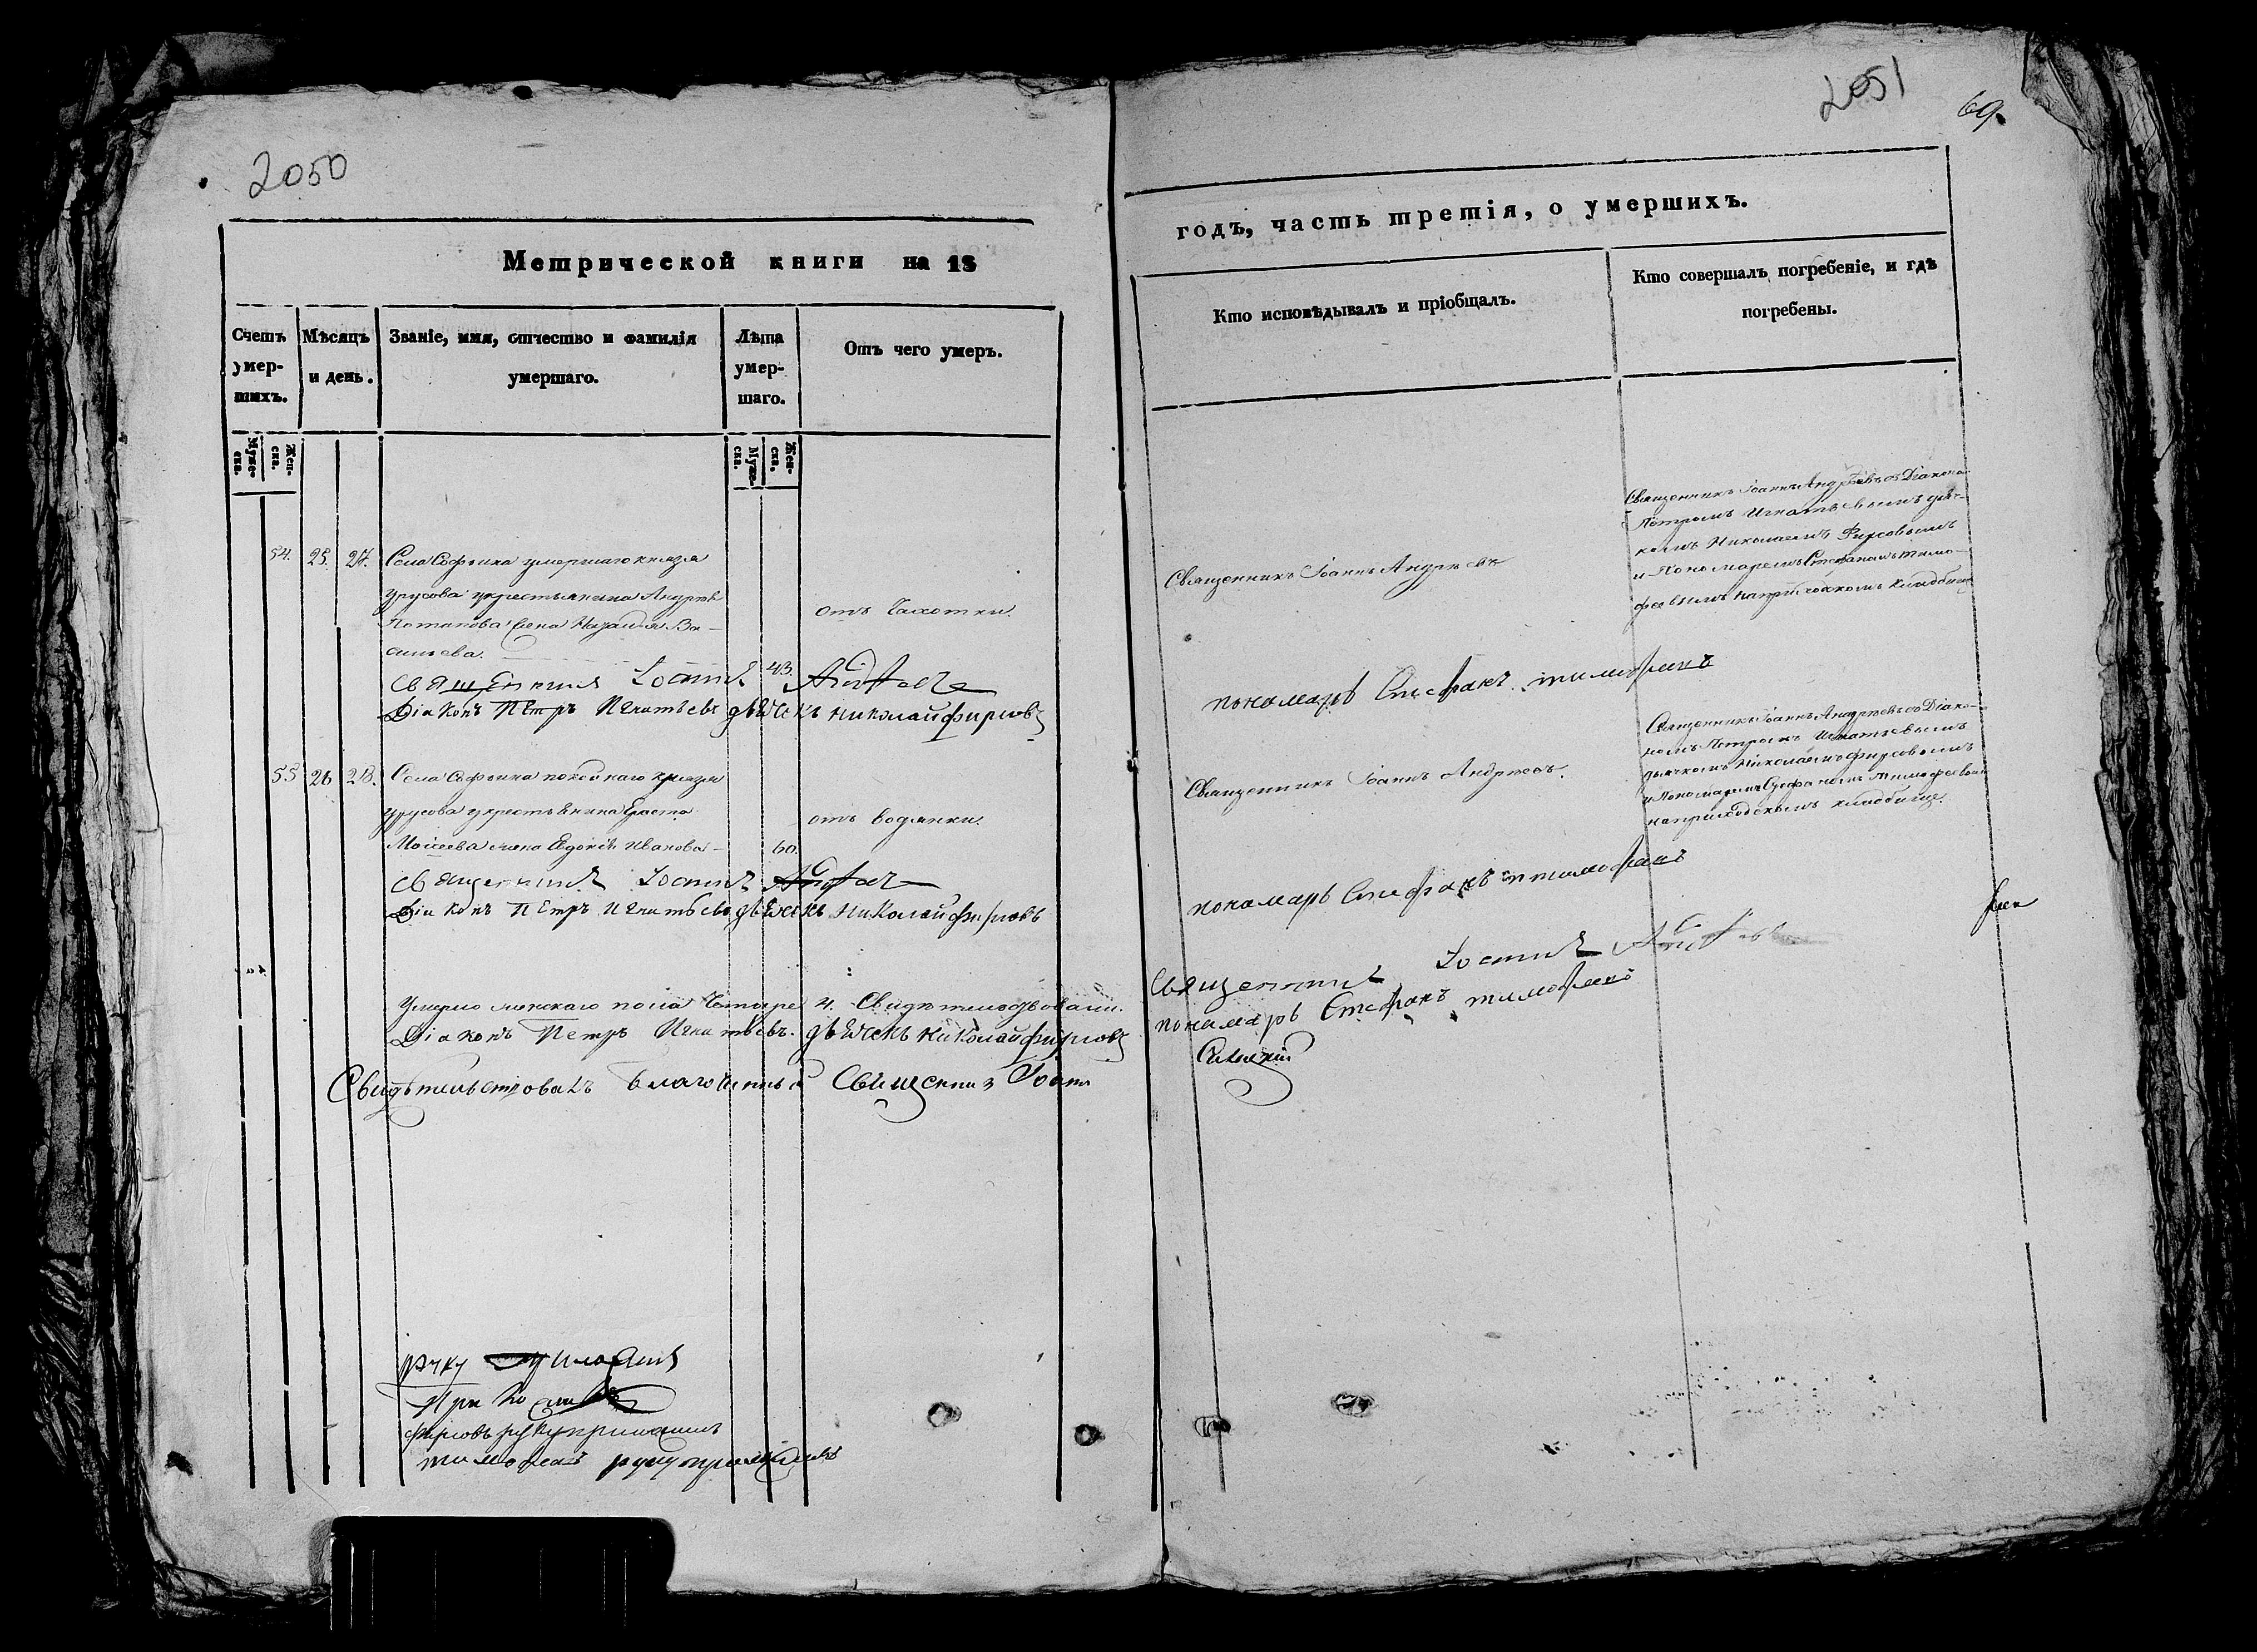 2050
Метрической книги на 18
Счетъ умер-шихъ.
Мѣсяцъ и день.
Званіе, имя, отчество и фамилія умершаго.
Лѣта умер-шаго.
Отъ чего умеръ.
Муже-ска.
Жен-ска.
Муже-ска.
Жен-ска.
54. 25. 27. Села Софьина умершаго князя
Урусова крестьянина Андрея
Потапова жена Наталья Ва-
сильева.
43.
отъ Чахотки.
Священникъ Іоаннъ Андреевъ
Діаконъ Петръ Игнатьевъ дьячекъ николай фирсовъ
55 26 28. Села Софьина покойнаго князя
Урусова крестьянина Ераста
Моисеева жена Евдокія Иванова
60.
отъ водянки.
Священникъ Іоаннъ Андреевъ
Діаконъ Петръ Игнатьевъ дьячекъ николай фирсовъ
Умерло женскаго пола Четыре 4. Свидѣтельствовали.
Діаконъ Петръ Игнатьевъ. дьячекъ николай фирсовъ
Свидѣтельствовалъ благочинный Священник Іоаннъ
руку приложилъ
фирсовъ руку приложилъ
тимофеевъ руку приложилъ
2051
69.
годъ, часть третія, о умершихъ.
Кто исповѣдывалъ и пріобщалъ.
Кто совершалъ погребеніе, и гдѣ погребены.
Священникъ Іоаннъ Андреевъ
Священникъ Іоаннъ Андреевъ съ Діакономъ
Петромъ Игнатьевымъ дьяч-
комъ Николаемъ Фирсовымъ
и Пономаремъ Стефаномъ Тимо-
феевымъ на приходскомъ кладбище
пономарь Стефанъ тимофеевъ
Священникъ Іоаннъ Андреевъ.
Священникъ Іоаннъ Андреевъ съ Діако-
номъ Петромъ Игнатьевымъ
дьячкомъ Николаемъ Фирсовымъ
и Пономаремъ Стефаномъ Тимофеевымъ
на приходскомъ кладбище.
пономарь Стефанъ тимофеевъ
Священникъ Іоаннъ Андреевъ
пономарь Стефанъ тимофеевъ